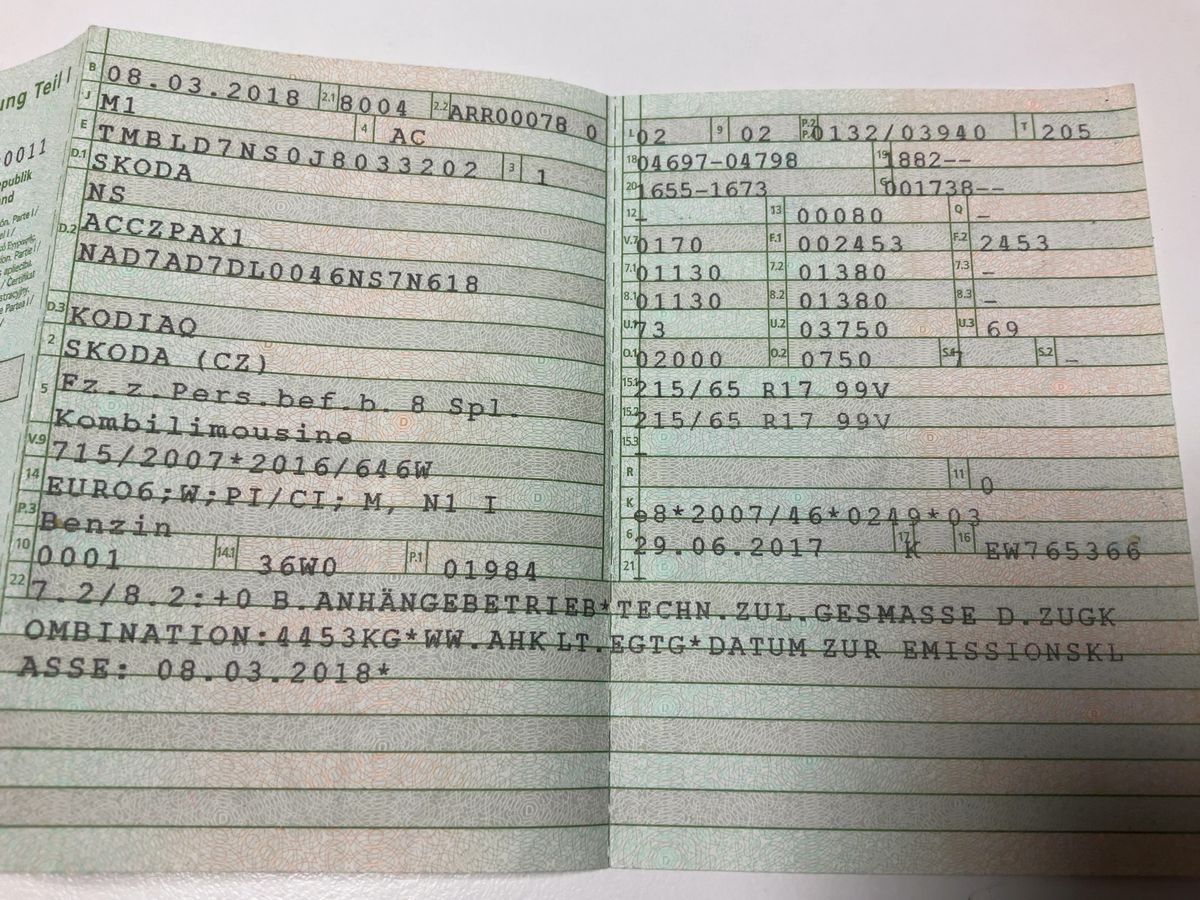 ung Teil I
0011
epublik
nd
B 08.03.2018 2.1 8004 2.2 ARR00078 0
J M1 4 AC
E TMBLD7NS0J8033202 3 1
D.1 SKODA
NS
D.2 ACCZPAX1
NAD7AD7DL0046NS7N618
D.3 KODIAQ
2 SKODA (CZ)
5 Fz.z.Pers.bef.b. 8 Spl.
Kombilimousine
V.9 715/2007*2016/646W
14 EURO6;W;PI/CI; M, N1 I
P.3 Benzin
10 0001 14.1 36W0 P.1 01984
L 02 9 02 P.2 0132/03940 T 205
18 04697-04798 19 1882--
20 1655-1673 G 001738--
12 - 13 00080 Q -
V.7 0170 F.1 002453 F.2 2453
7.1 01130 7.2 01380 7.3 -
8.1 01130 8.2 01380 8.3 -
U.1 73 U.2 03750 U.3 69
O.1 02000 O.2 0750 S.1 7 S.2 -
15.1 215/65 R17 99V
15.2 215/65 R17 99V
15.3 -
R 11 0
K e8*2007/46*0249*03
6 29.06.2017 17 K 16 EW765366
21 -
22 7.2/8.2:+0 B.ANHÄNGEBETRIEB*TECHN.ZUL.GESMASSE D.ZUGK
OMBINATION:4453KG*WW.AHK LT.EGTG*DATUM ZUR EMISSIONSKL
ASSE: 08.03.2018*